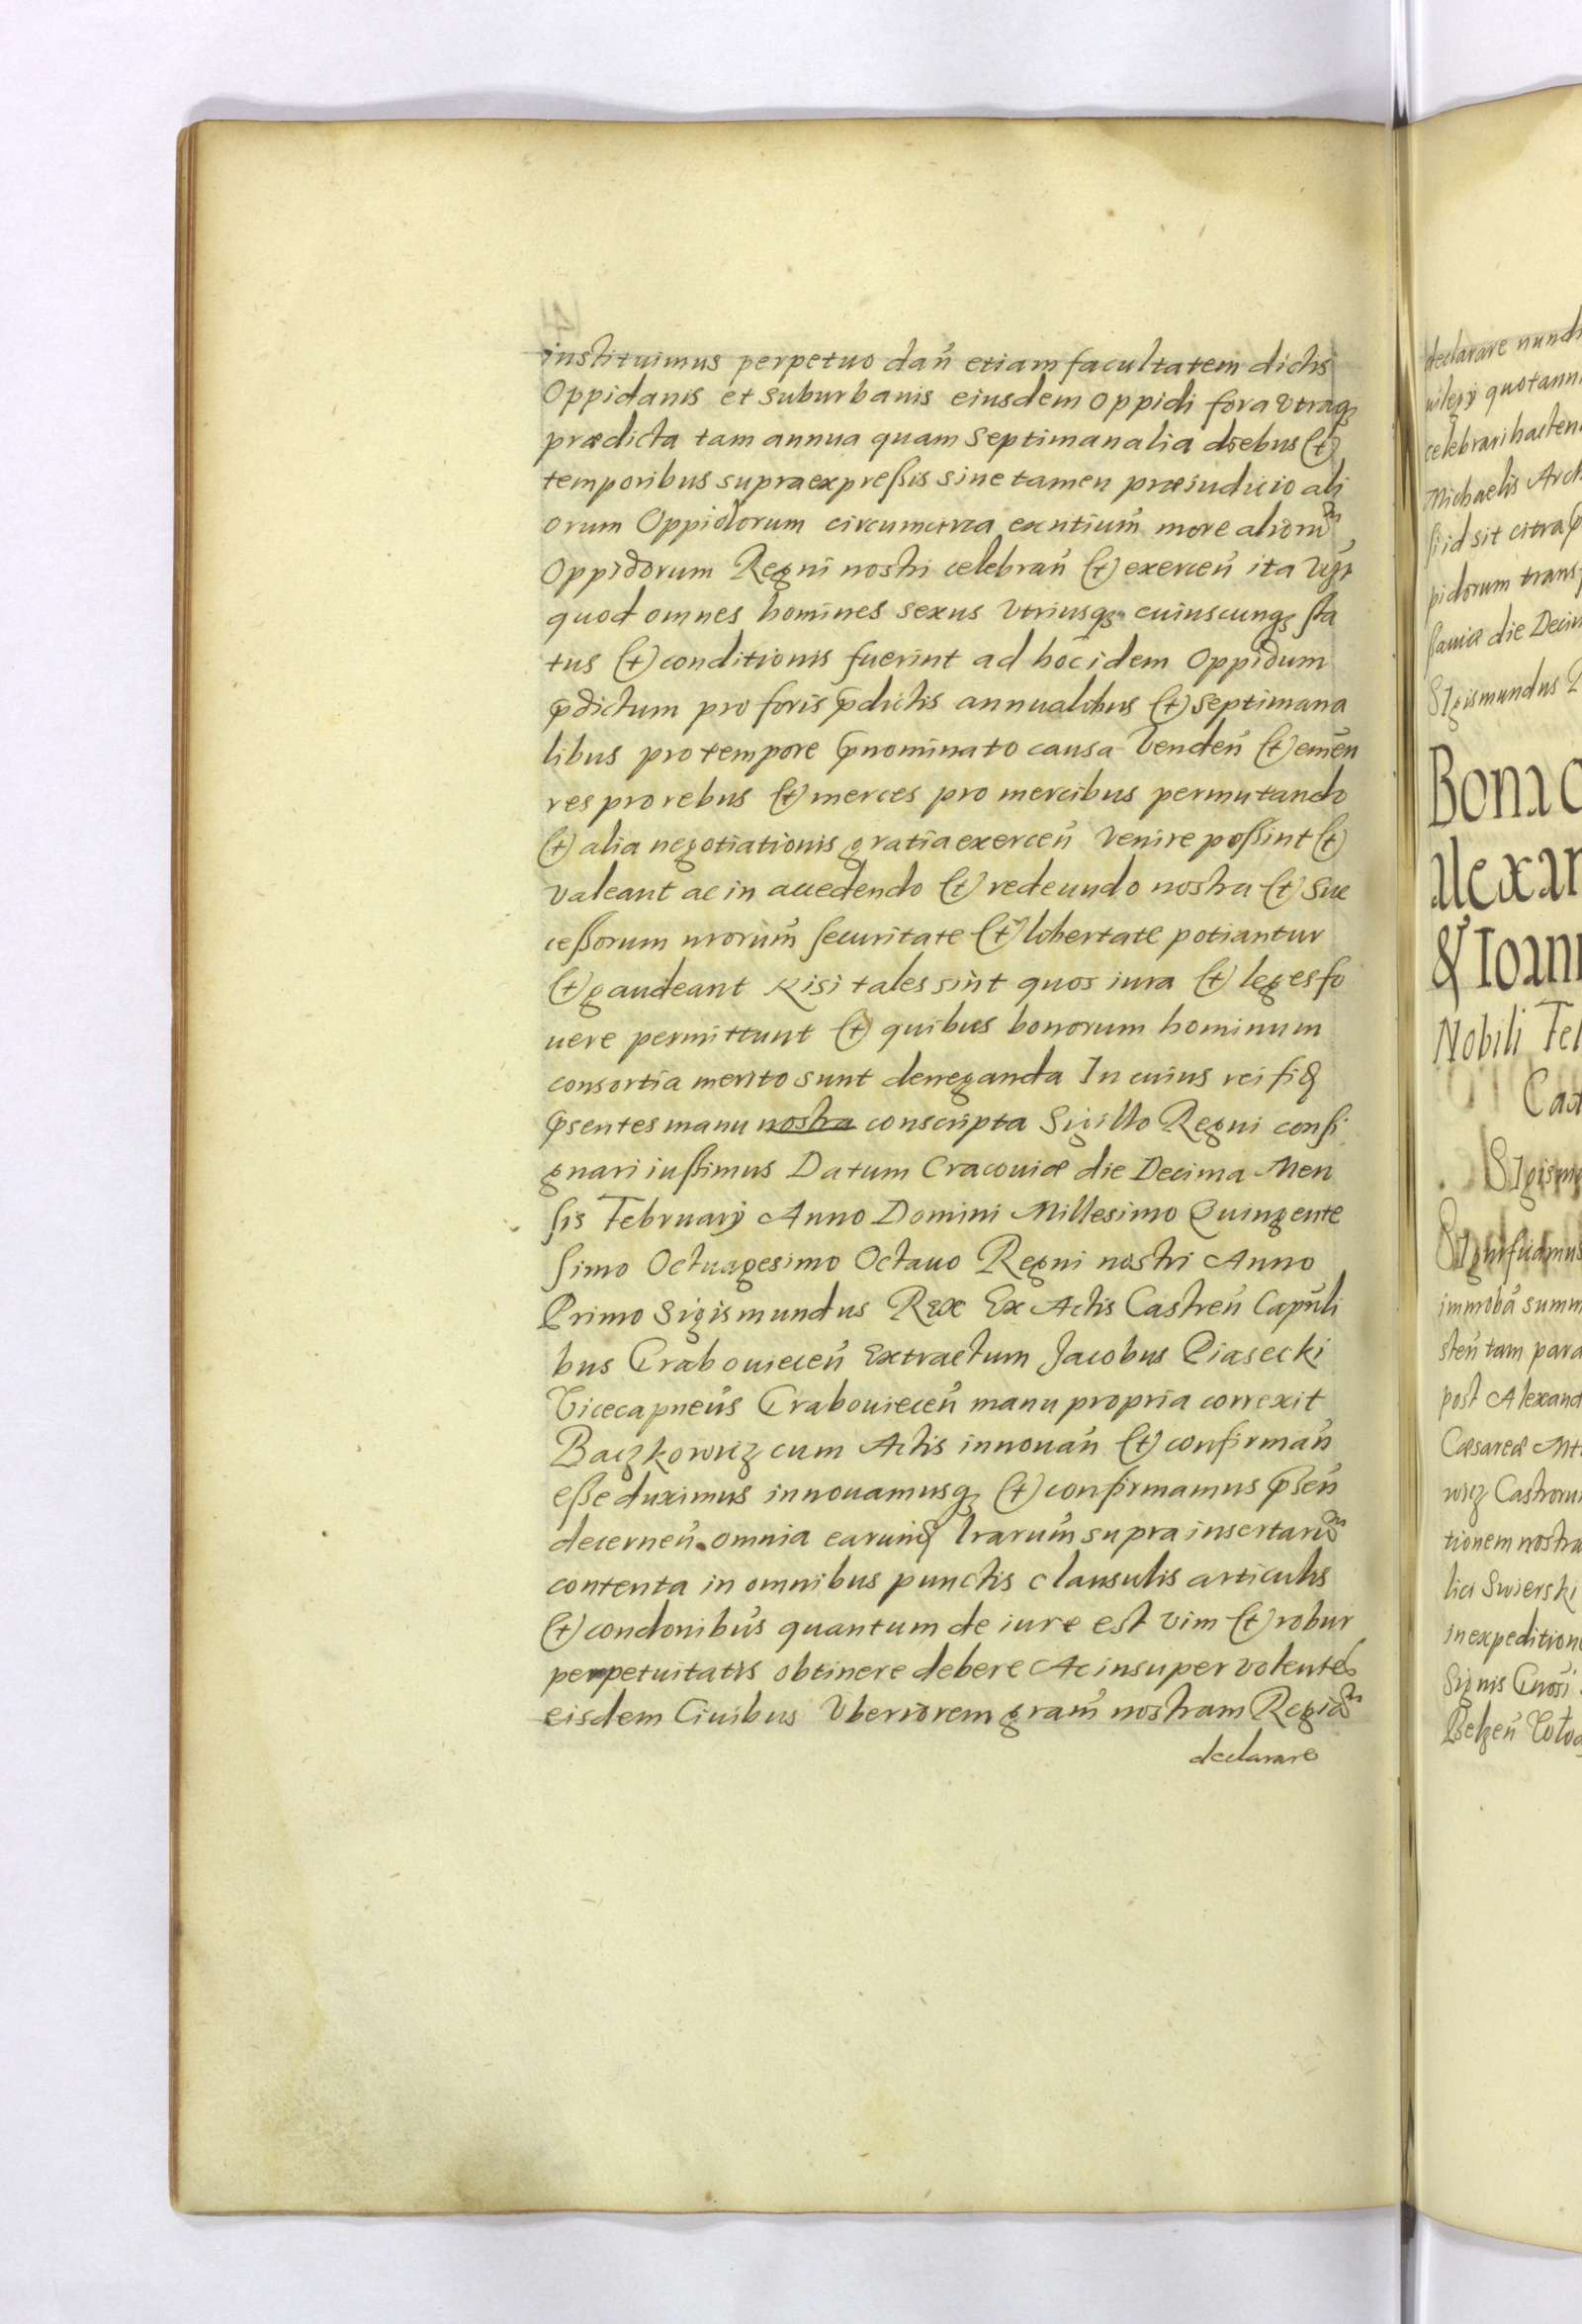 instituimus perpetuo dan̄ etiam facultatem dictis
Oppidanis et suburbanis eiusdem oppidi fora vtraqꝫ
prædicta tam annua quam septimanalia diebus (et)
temporibus supra expreßis sine tamen præiudicio ali
orum Oppidorum circumcirca exntium̄ more alioru᷒
Oppidorum Regni nostri celebran̄ (et) exercen̄ ita
quod omnes homines sexus vtriusqꝫ cuiuscunqꝫ sta
tus (et) conditionis fuerint ad hoc idem Oppidum
p̄dictum pro foris p̄dictis annualibus (et) septimana
libus pro tempore p̄nominato causa venden̄ (et) emen̄
res pro rebus (et) merces pro mercibus permutando
(et) alia negotiationis gratia exercen̄ venire poßint (et)
valeant ac in accedendo (et) redeundo nostra (et) suc
ceßorum nrorum̄ securitate (et) libertate potiantur
(et) gaudeant Nisi tales sint quos iura (et) leges fo
uere permittunt (et) quibus bonorum hominum
consortia merito sunt deneganda In cuius rei fiꝫ
p̄sentes manu nostra conscripta Sigillo Regni consi
gnari iußimus Datum Cracouiæ die Decima Men
sis February Anno Domini Millesimo Quingente
simo Octuagesimo Octauo Regni nostri Anno
Primo Sigismundus Rex Ex Actis Castren̄ Capn̄li
bus Grabouiecen̄ Extractum Jacobus Piasecki
Vicecapneus̄ Grabouiecen̄ manu propria correxit
Baczkowicz cum Actis innouan̄ (et) confirman̄
eße duximus innouamusqꝫ (et) confirmamus p̄sen̄
decernen̄ omnia earumꝫ lrarum̄ supra insertaru᷒
contenta in omnibus punctis clausulis articulis
(et) condonibūs quantum de iure est vim (et) robur
perpetuitatis obtinere debere Ac insuper volentes
eisdem Ciuibus Vberiorem gram̄ nostram Regia᷒
declarare
declarare nundi
uilegy quotanni
celebrari hacten
Michaelis Arch
si id sit citra p̄
pidorum trans
sauiæ die Decim
Sigismundus R
Bona
alexan
& Ioann
Nobili Fel
Sigism
Significamus
immobā summ
sten̄ tam para
post Alexand
Cæsareæ Mt
wicz Castroru
tionem nostra
lici Swierski
in expedition
Signis
Belzen̄